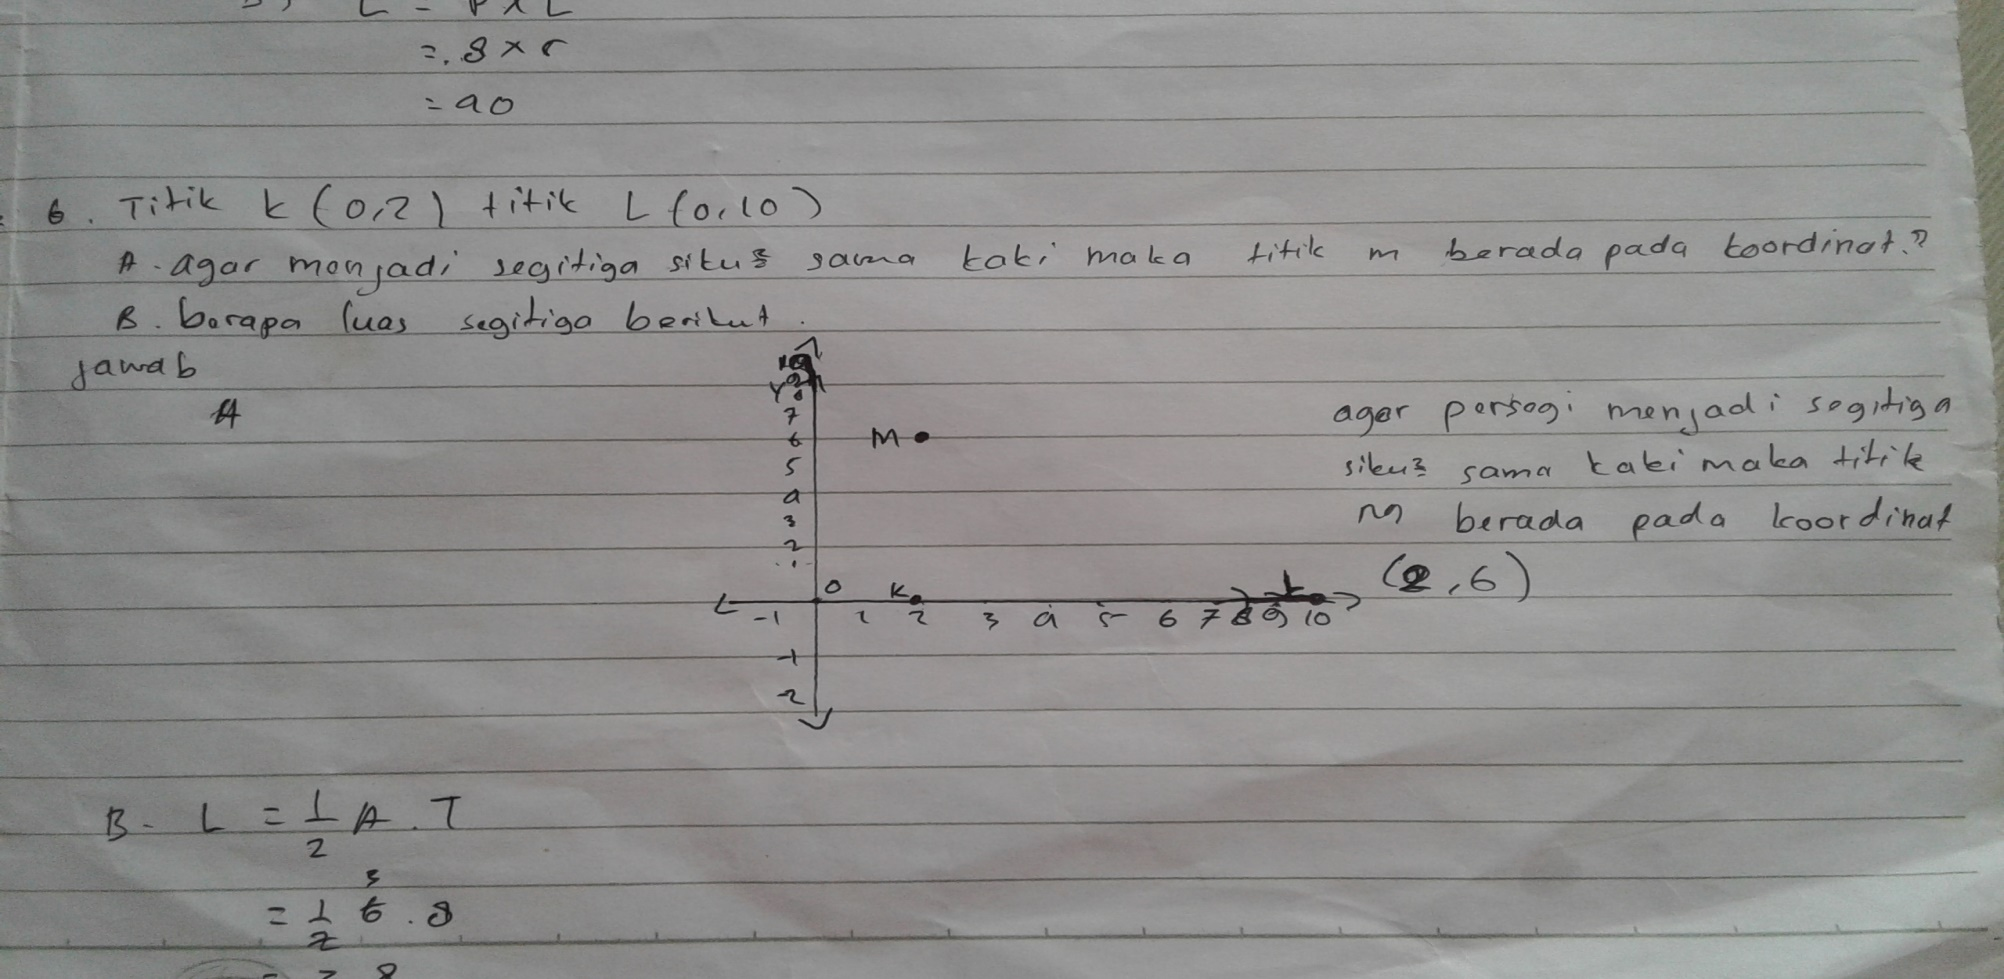 L = P x L
= . 8 x 5
= 40
6. Titik k (0,2) titik L (0,10)
A. agar monjadi segitiga siku2 sama kaki maka titik m berada pada koordinat.?
B. barapa luas segitiga berikut.
Jawab
A
Y
7
6
5
4
3
2
1
M
agar persegi menjadi segitiga
siku2 sama kaki maka titik
M berada pada koordinat
(2,6)
0 K L
-1 1 2 3 4 5 6 7 8 9 10
-1
-2
B. L = 1/2 A . T
3
= 1/2 6 . 8